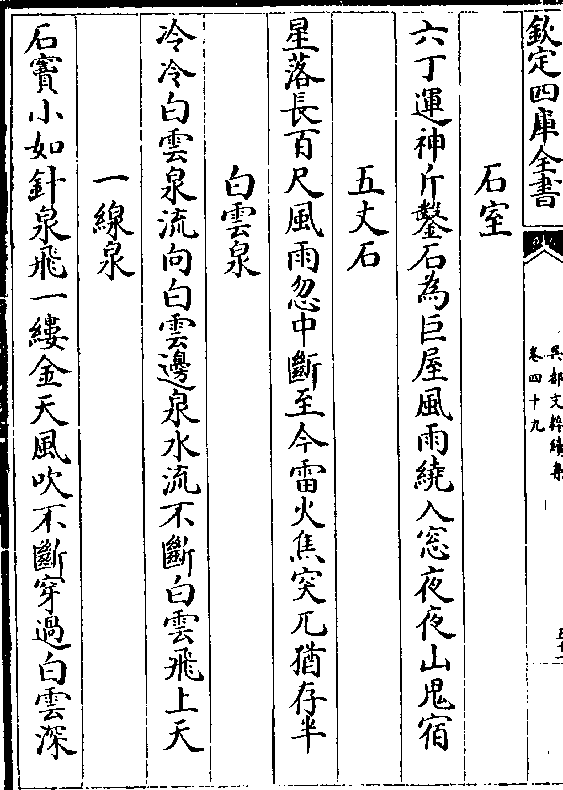 欽定四庫全書
吳都文粹續集
卷四十九
石室
六丁運神斤鑿石為巨屋風雨繞入窓夜夜山鬼宿
五丈石
星落長百尺風雨忽中斷至今雷火焦突兀猶存半
白雲泉
冷冷白雲泉流向白雲邊泉水流不斷白雲飛上天
一線泉
石竇小如針泉飛一縷金天風吹不斷穿過白雲深